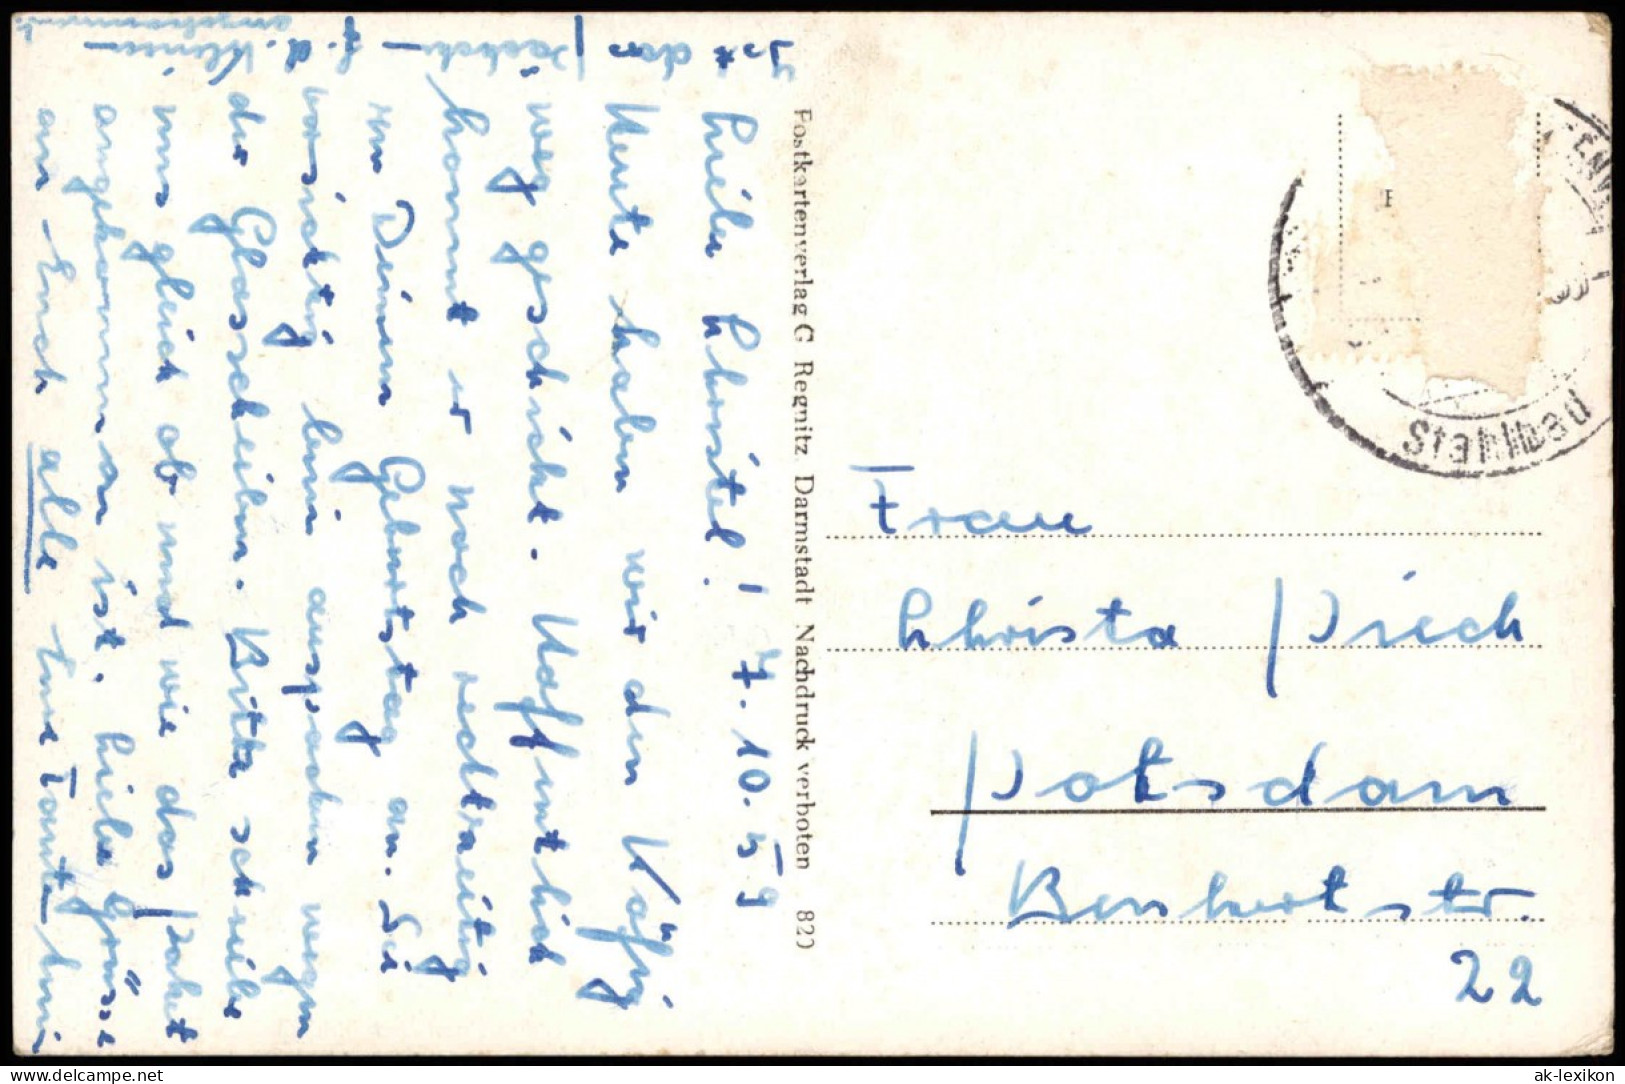 Liebe Christel! 7.10.59
Heute haben wir den Käfig
weg geschickt. Hoffentlich
kommt er noch rechtzeitig
zu Deinem Geburtstag an. Sei
vorsichtig beim auspacken wegen
der Glasscheiben. Bitte schreibe
uns gleich ob und wie das Paket
angekommen ist. Liebe Grüsse
an Euch alle Eure Tante
Ist das
f. d. Klinik
angekommen
Postkartenverlag G Regnitz Darmstadt Nachdruck verboten 820
Frau
Christa Piech
Potsdam
str.
22
ak-lexikon